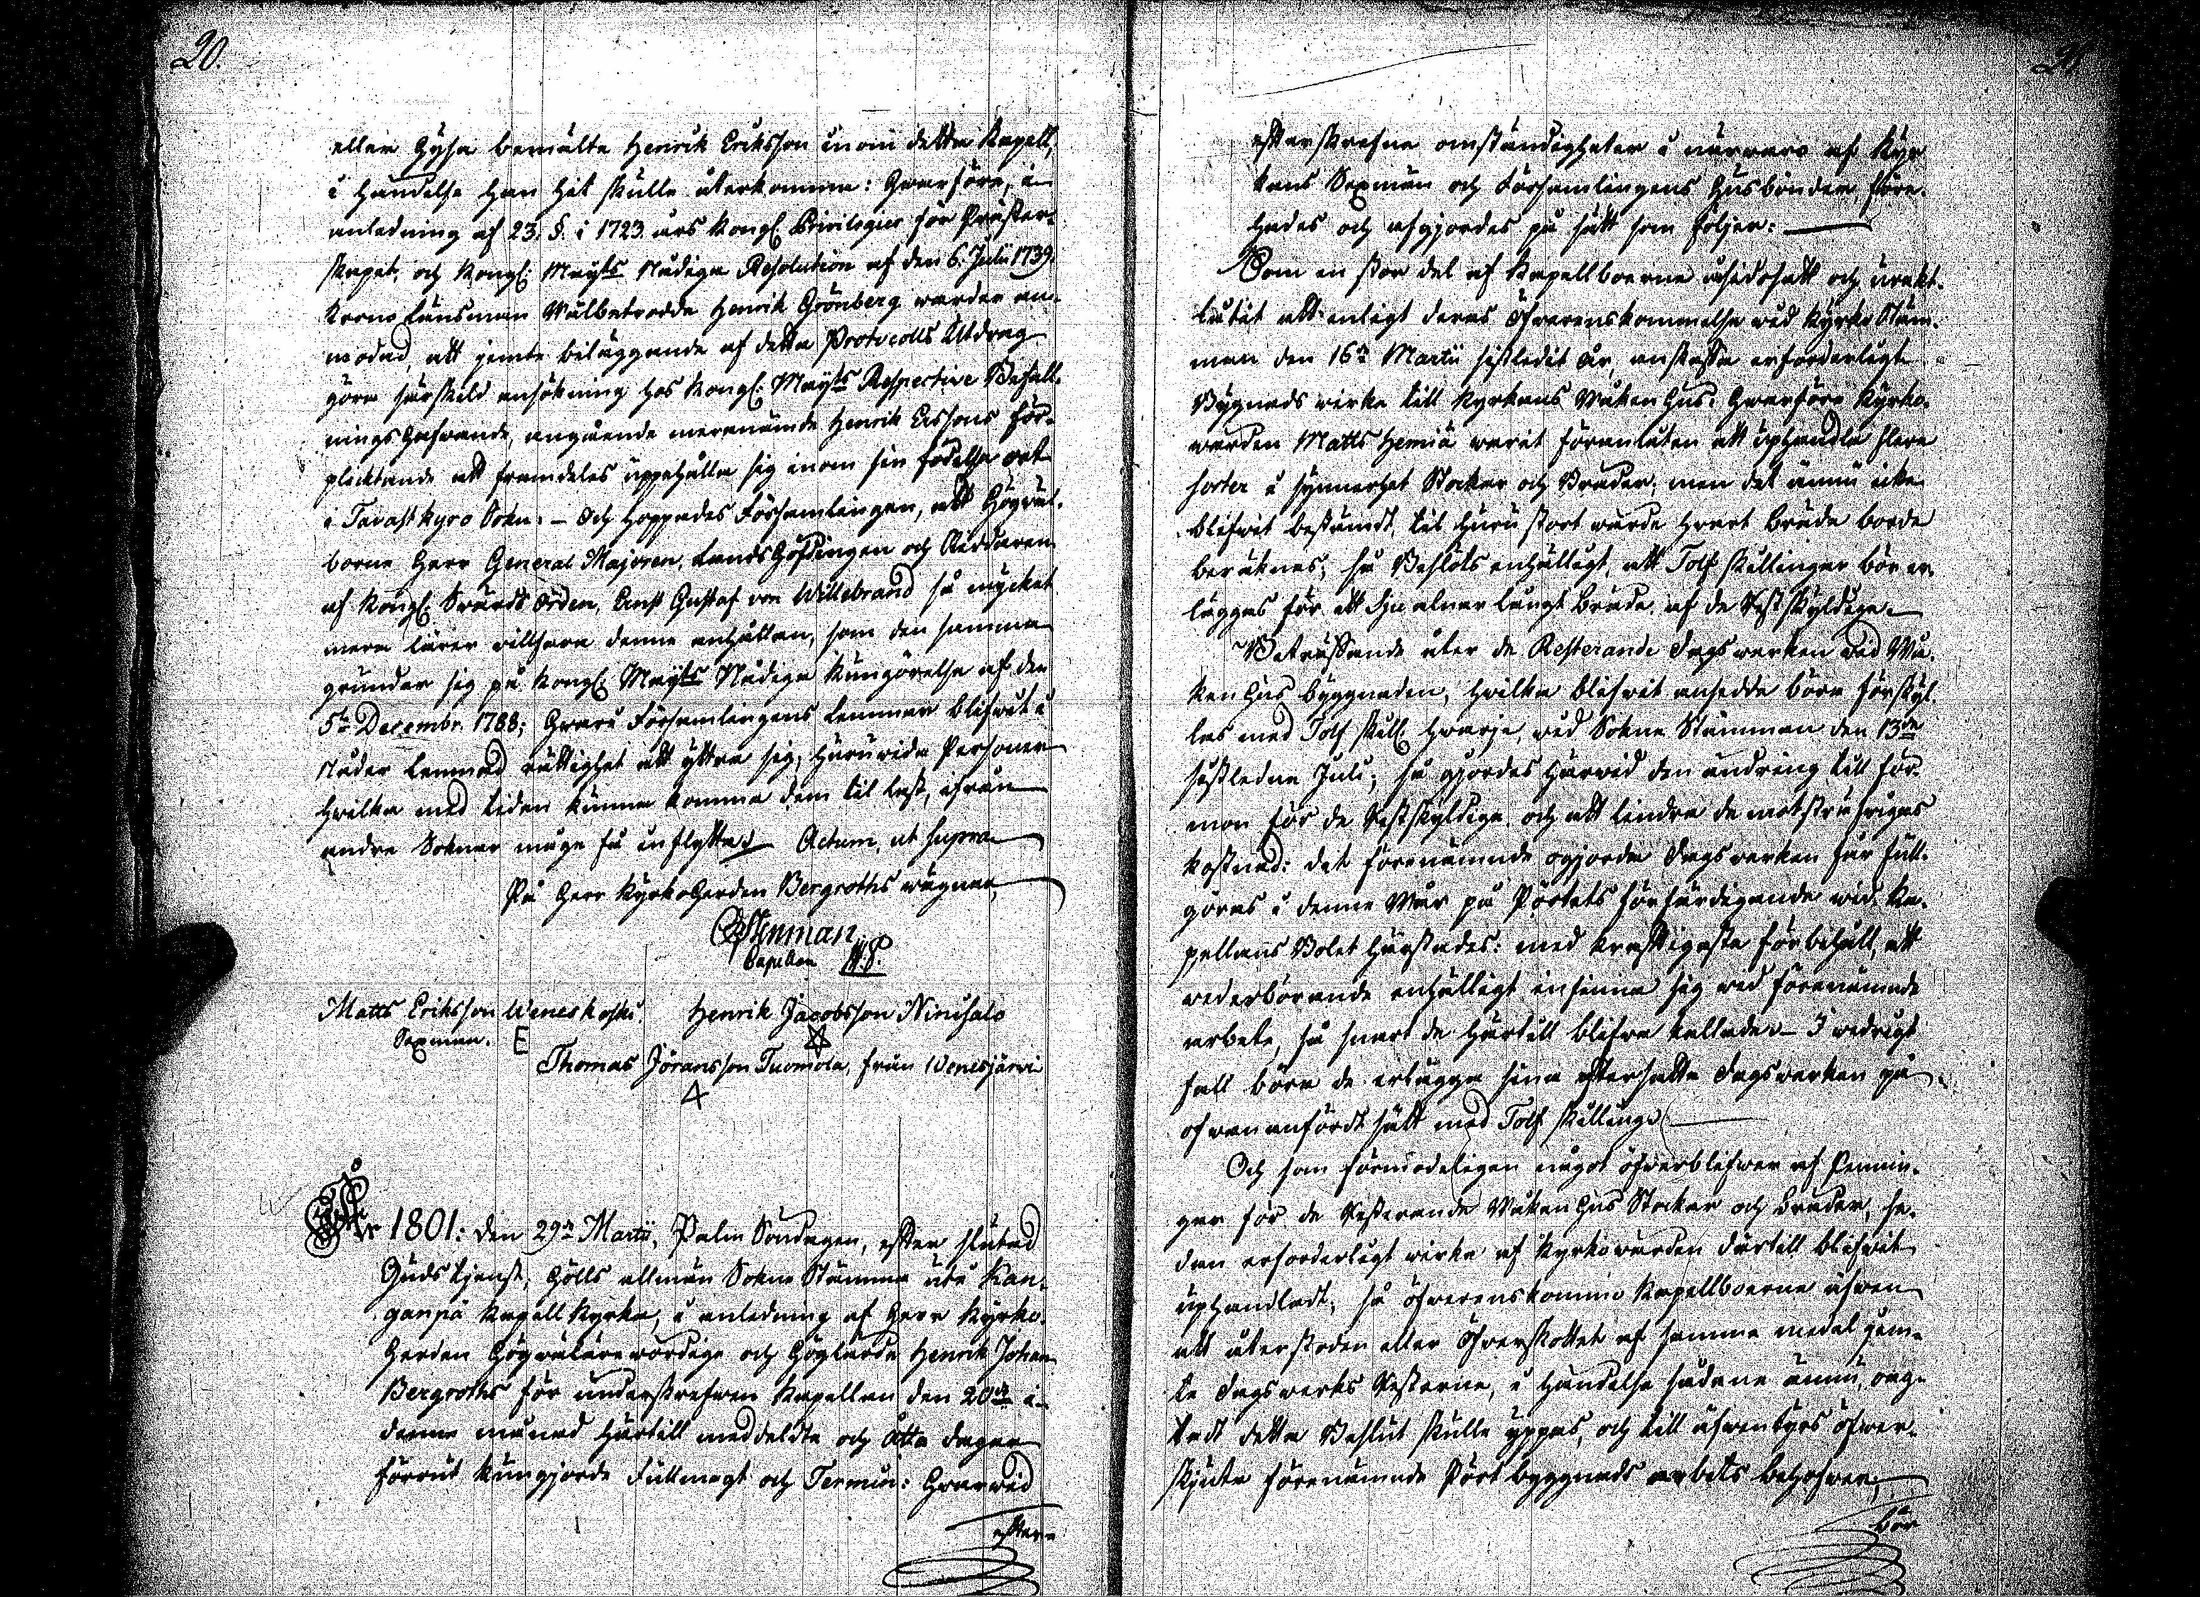 20.
eller hysa bemälte Henrik Eriksson inom detta Kapell,
i händelse han hit skulle återkomma: Hwarföre, i
anledning af 23. §. i 1723 års Kongl. Privilegier för Präster-
skapet, och Kongl: Mayts Nådiga Resolution af den 6. Julii 1739.
Krono Länsman Wälbetrodde Henrik Grönberg warder an-
modad, att jemte biläggande af detta Protocolls Utdrag
göra särskild ansökning hos Kongl: Mayts Respective Befall-
ningshafwande, angående merenämde Henrik Erssons för-
plicktande att framdeles uppehålla sig inom sin födelse ort
i Tavastkyro Sokn: – Och hoppades Församlingen, att Högwäl-
borne Herr General Majoren, Landshöfdingen och Riddaren
af Kongl: Swärds Orden, Ernst Gustaf von Willebrand så mycket
mera lärer willfara denne anhållan, som den samma
grundar sig på Kongl: Mayts Nådiga Kungörelse af den
5te Decembr. 1788; Hwari Församlingens lemmar blifwit i
Nåder lemnad rättighet att yttra sig, huruwida Personer
hwilka med tiden kunna komma dem til last, ifrån
andra Soknar måge få inflytta. Actum, ut supra
På Herr KyrkoHerden Bergroths wägnar,
Stenman.
Capellan
Matts Eriksson Weneskoski. Henrik Jacobsson Niinisalo
Sexman. E
Thomas Jöransson Tuomola, från Wenesjärwi
År 1801: den 29de Martii, Palm Söndagen, efter slutad
Gudstjenst, hölls allmän Sokne Stämma uti Kan-
ganpä Kapell Kyrka, i anledning af Herr Kyrko-
Herden Högwälärewördige och Höglärde Henrik Johan
Bergroths för underskrefwen Kapellan den 20de i
denne månad härtill meddelte och Åtta dagar
förrut kungjorde Fullmagt och Termin: Hwarwid
efter-
21
efterskrefne omständigheter i närwaro af Kyr-
kans Sexmän och Församlingens Husbönder, före-
hades och afgjordes på sätt som följer:
Som en stor del af Kapellboerne åsidosatt och urakt-
låtit att enligt deras Öfwerenskommelse wid Kyrko Stäm-
man den 16de Martii sistledit år, anskaffa erforderligt
Bygnads wirke till Kyrkans Waken hus: Hwarföre Kyrko-
warden Matts Hemiä warit föranlåten att uphandla flere
sorter i synnerhet Stockar och Bräder; men det ännu icke
blifwit bestämdt, til huru stort wärde hwart bräde borde
beräknas; så Beslöts enhälligt, att Tolf skillingar bör er-
läggas för ett Sju alnar långt bräde, af de Restskyldige.
Beträffande åter de Resterande Dagswerken wid Wa-
kenhus byggnaden, hwilka blifwit ansedde böra förskyl-
las med Tolf skill. hwarje, wid Sokne Stämman den 13de
sistledne Julii; så gjordes härwid den ändring till för-
mon för de Restskyldige, och att lindra de motsträfwigas
kostnad: det förenämnde ogjorde Dagswerken får full-
göras i denne Wår på Pörtets förfärdigande wid Ka-
pellans Bolet härstädes: med kraftigaste förbehåll, att
wederbörande enhälligt infinna sig wid förenämnde
arbete, så snart de härtill blifwa kallade – I widrigt
fall böra de erlägga sina eftersatta Dagswerken på
ofwananfördt sätt med Tolf skillingar
Och som förmodeligen något öfwerblifwer af Pennin-
gar för de Resterande Wakenhus Stockar och bräder, se-
dan erforderligt wirke af Kyrkowärden därtill blifwit
uphandladt; så öfwerenskommo Kapellboerna äfwen
att återstoden eller Öfwerskottet af samma medel jem-
te Dagswerks Resterna, i händelse sådane ännu, oag-
tadt detta Beslut skulle yppas, och till äfwentyrs öfwer-
skjuta förenämnde Pört byggnads arbets behofwer,
bör